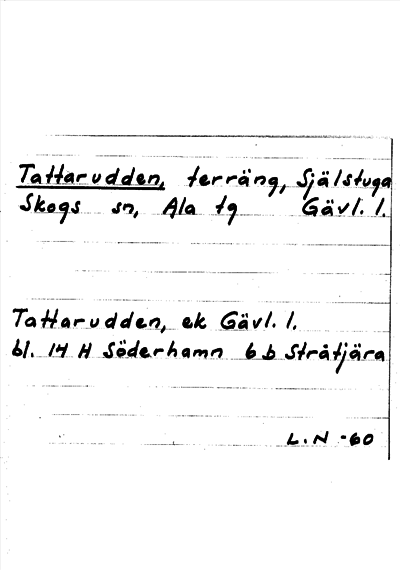 Tattarudden, terräng, Själstuga
Skogs sn, Ala tg Gävl. l.
Tattarudden, ek Gävl. l.
bl. 14 H Söderhamn 6 b Stråtjära
L. N -60